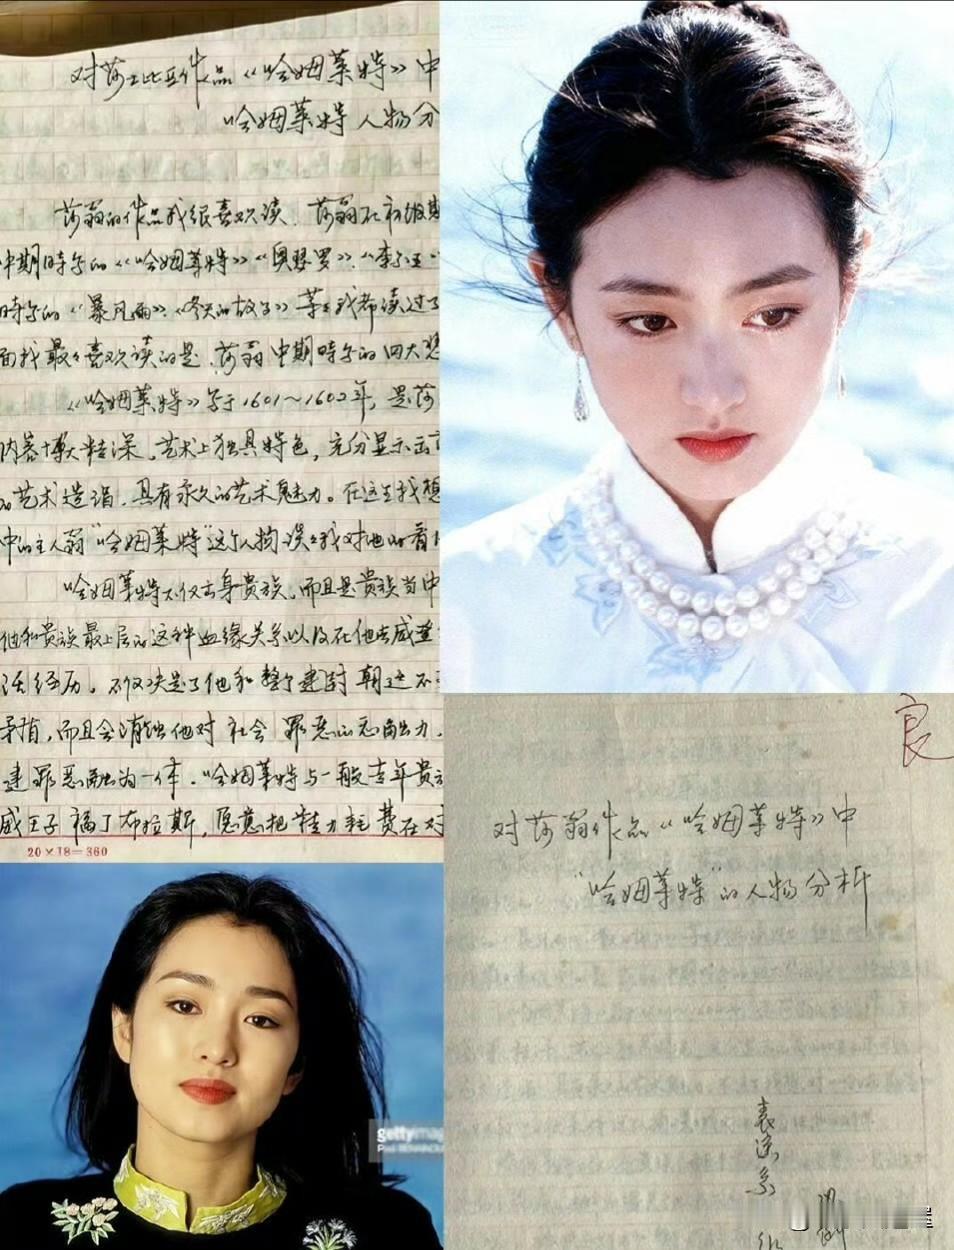 对莎士比亚作品《哈姆莱特》中
哈姆莱特人物分
莎翁的作品我很喜欢读.莎翁在初级期
中期时分的《哈姆莱特》《奥瑟罗》.《李尔王
时分的《暴风雨》《冬天的故事》等等我都读过了
面我最最喜欢读的是.莎翁中期时分的四大悲
《哈姆莱特》写于1601～1602年,是莎
内容博大精深.艺术上独具特色,充分显示出了
的艺术造诣.具有永久的艺术魅力。在这里我想
中的主人翁“哈姆莱特”这个人物谈谈我对他的看
哈姆莱特不仅出身贵族.而且是贵族当中
他和贵族最上层的这种血缘关系以及在他去威登
活经历。不仅决定了他和整个建封朝这不
矛盾,而且会消蚀他对社会罪恶的
建罪恶融为一体.哈姆莱特与一般青年贵
威王子福丁布拉斯,愿意把精力耗费在对
20×18=360
良
对莎翁作品《哈姆莱特》中
“哈姆莱特”的人物分析
表演系
gettyimag